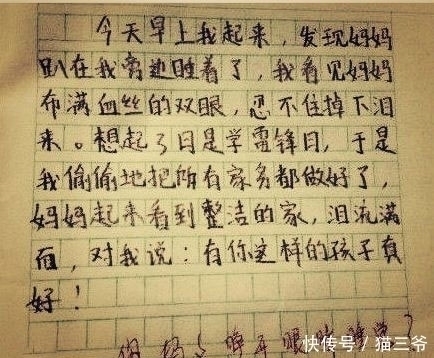 今天早上我起来，发现妈妈
趴在我旁边睡着了，我看见妈妈
布满血丝的双眼，忍不住掉下泪
来。想起了日是学雷锋日，于是
我偷偷地把所有家务都做好了，
妈妈起来看到整洁的家，泪流满
面，对我说：有你这样的孩子真
好！
妈 睁开眼睛睡觉？
快传号／猫三爷